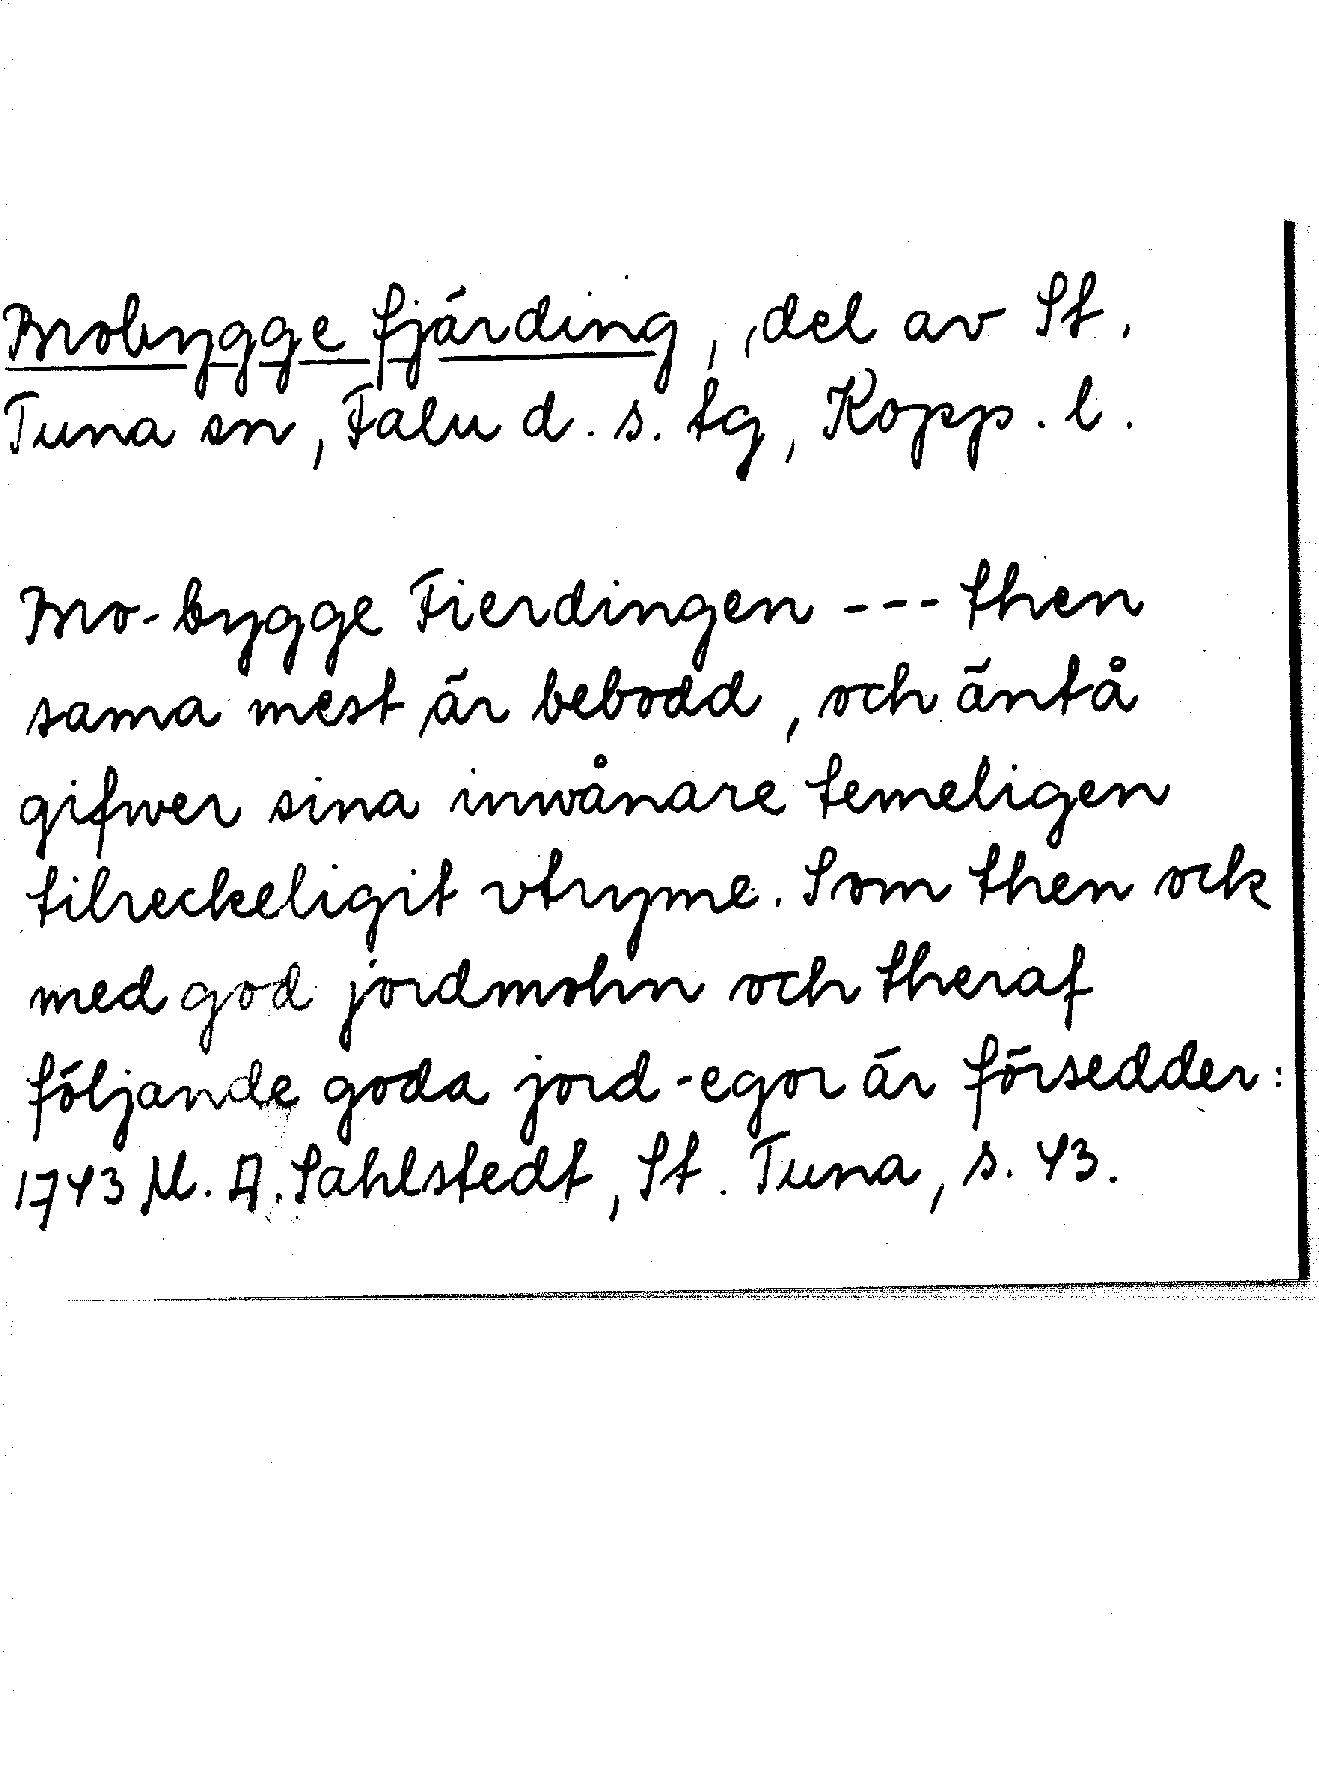 Brobygge fjärding, del av St.
Tuna sn, Falu d. s. tg, Kopp. l.
Bro-bygge Fierdingen --- then
sama mest är bebodd, och äntå
gifwer sina inwånare temeligen
tilreckeligit vtryme. Som then ock
med god jordmohn och theraf
följande goda jord-egor är försedder:
1743 M. A. Sahlstedt, St. Tuna, s. 43.